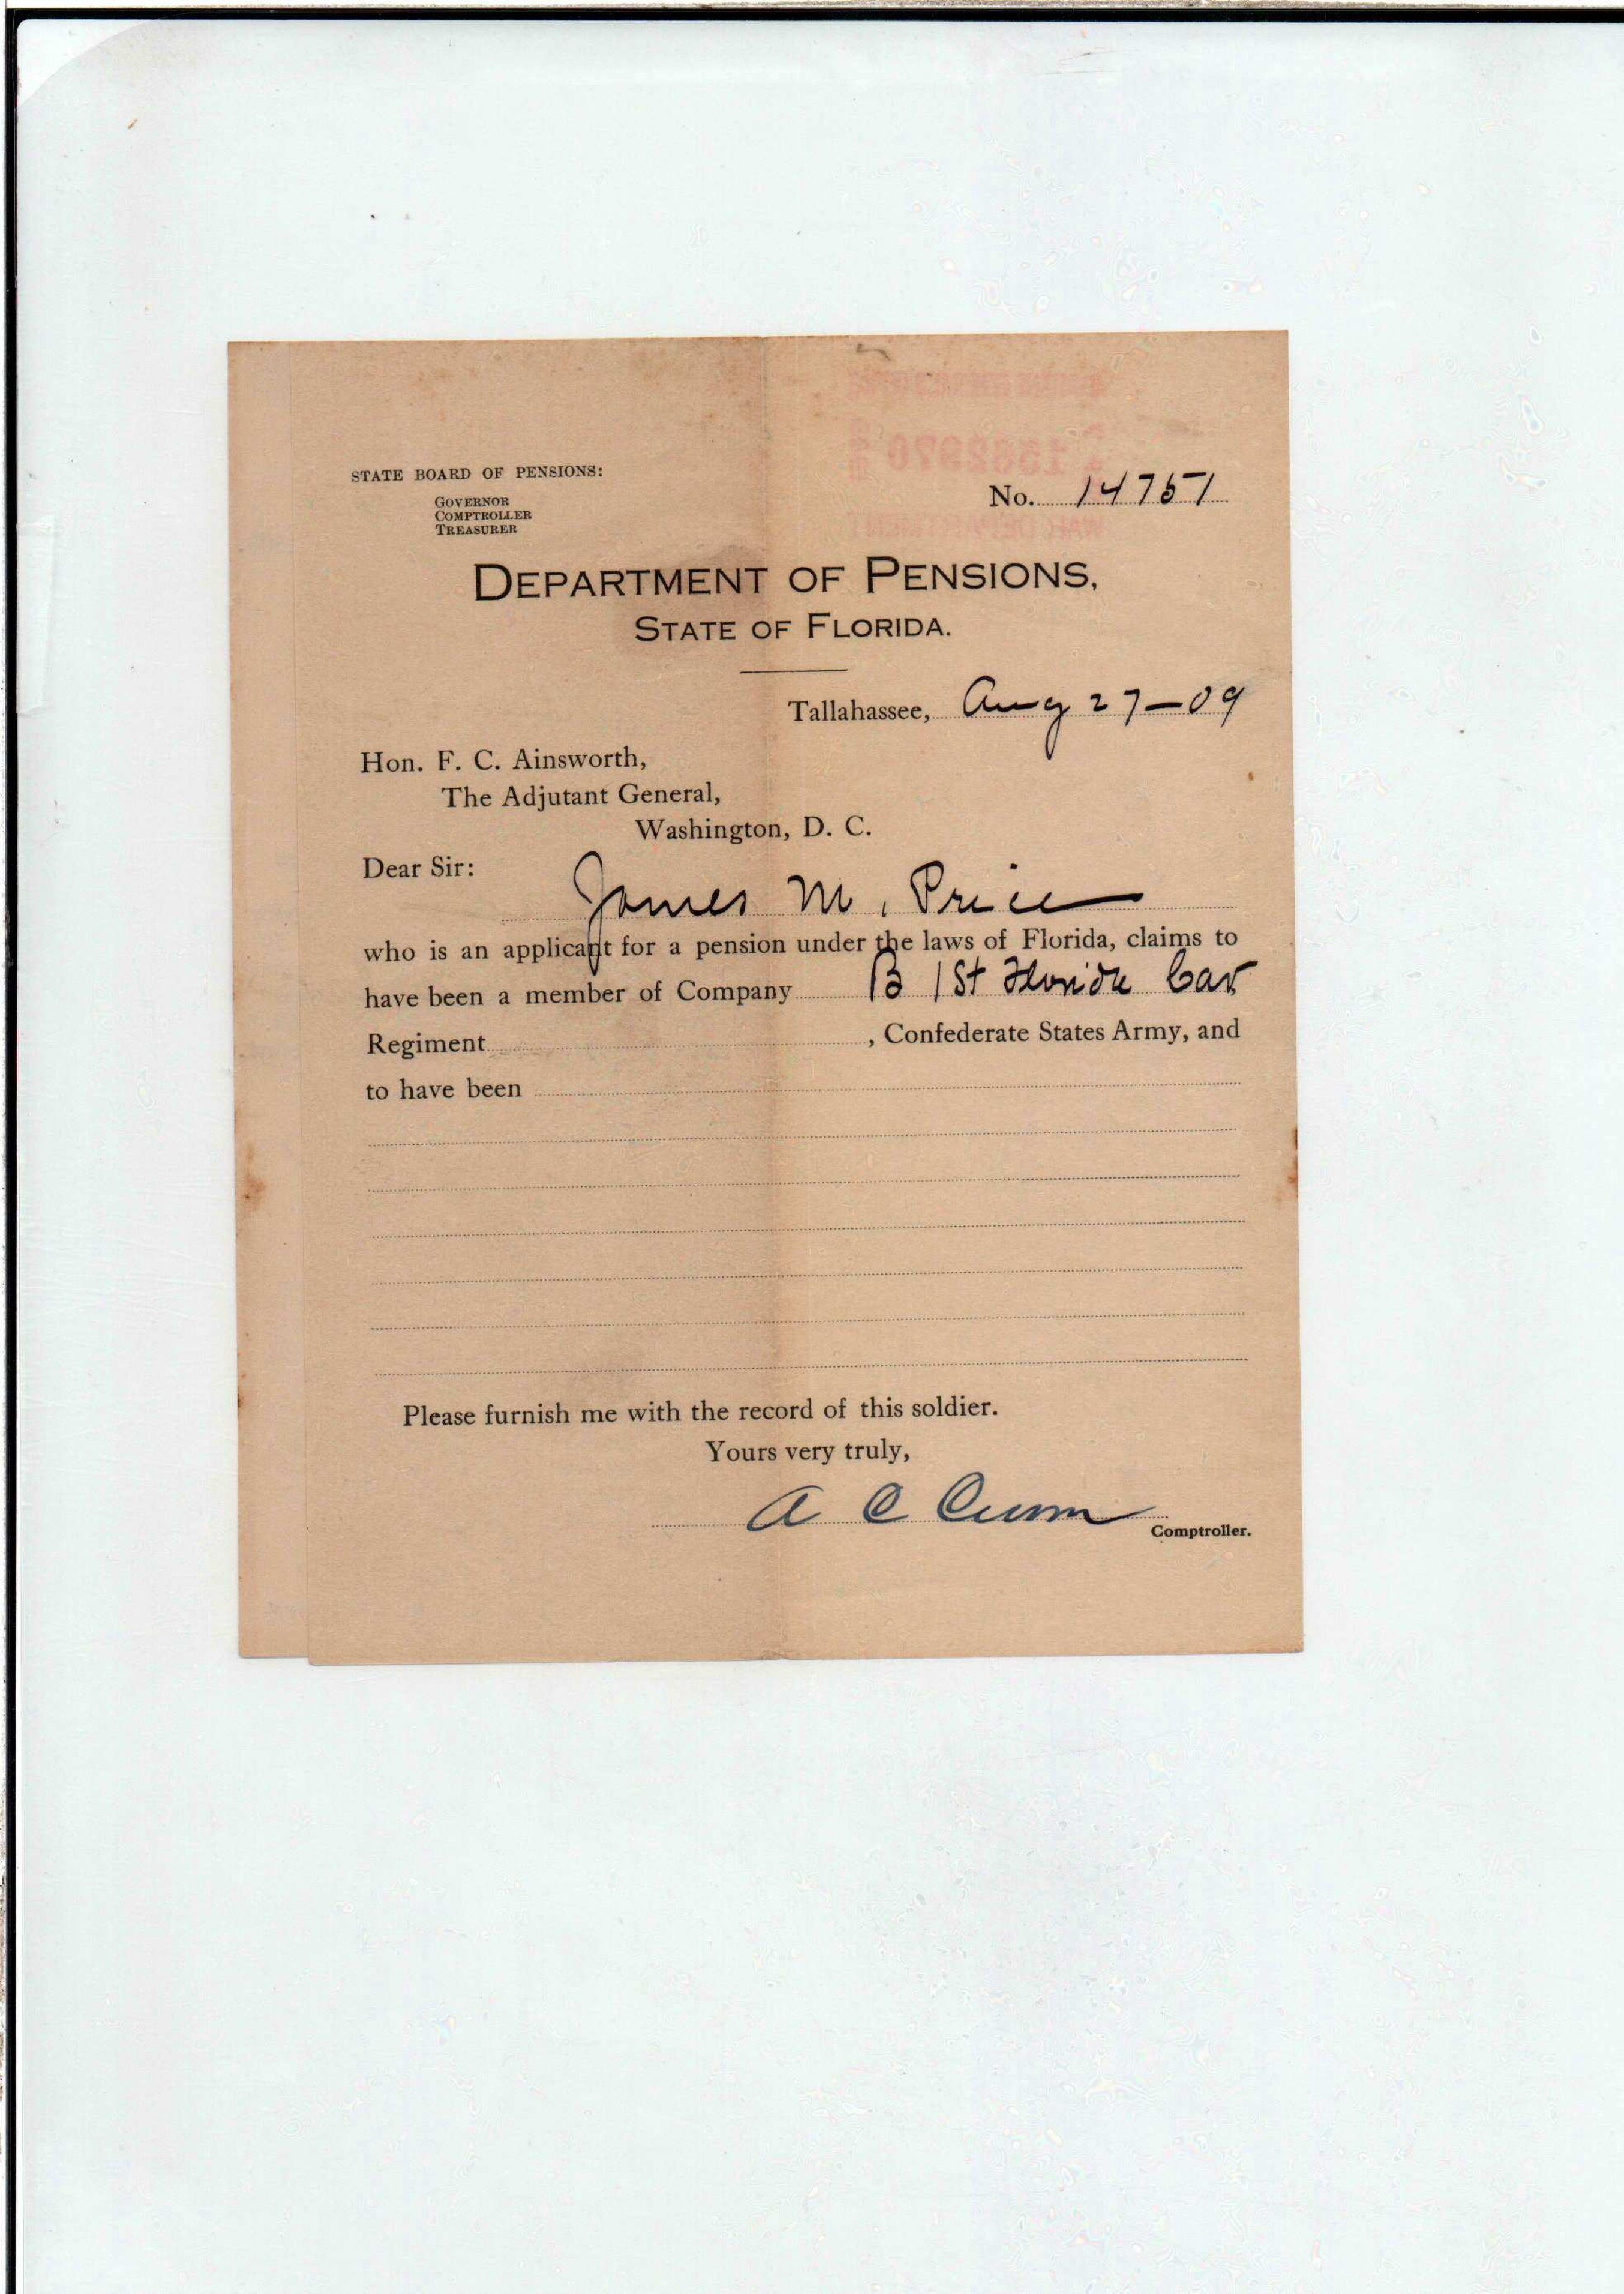 STATE BOARD OF PENSIONS:
GOVERNOR
COMPTROLLER
TREASURER
No. 14757
DEPARTMENT OF PENSIONS,
STATE OF FLORIDA.
Tallahassee, Aug 27-09
Hon. F. C. Ainsworth,
The Adjutant General,
Washington, D. C.
Dear Sir:
James M. Price
who is an applicant for a pension under the laws of Florida, claims to
have been a member of Company B 1st Florida Cav
Regiment , Confederate States Army, and
to have been
Please furnish me with the record of this soldier.
Yours very truly,
A C Croom
Comptroller.